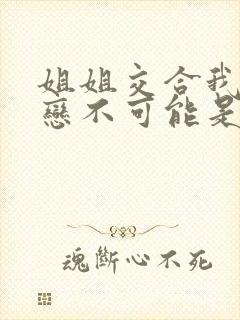 姐姐交合我
戀不可能是
魂斷心不死